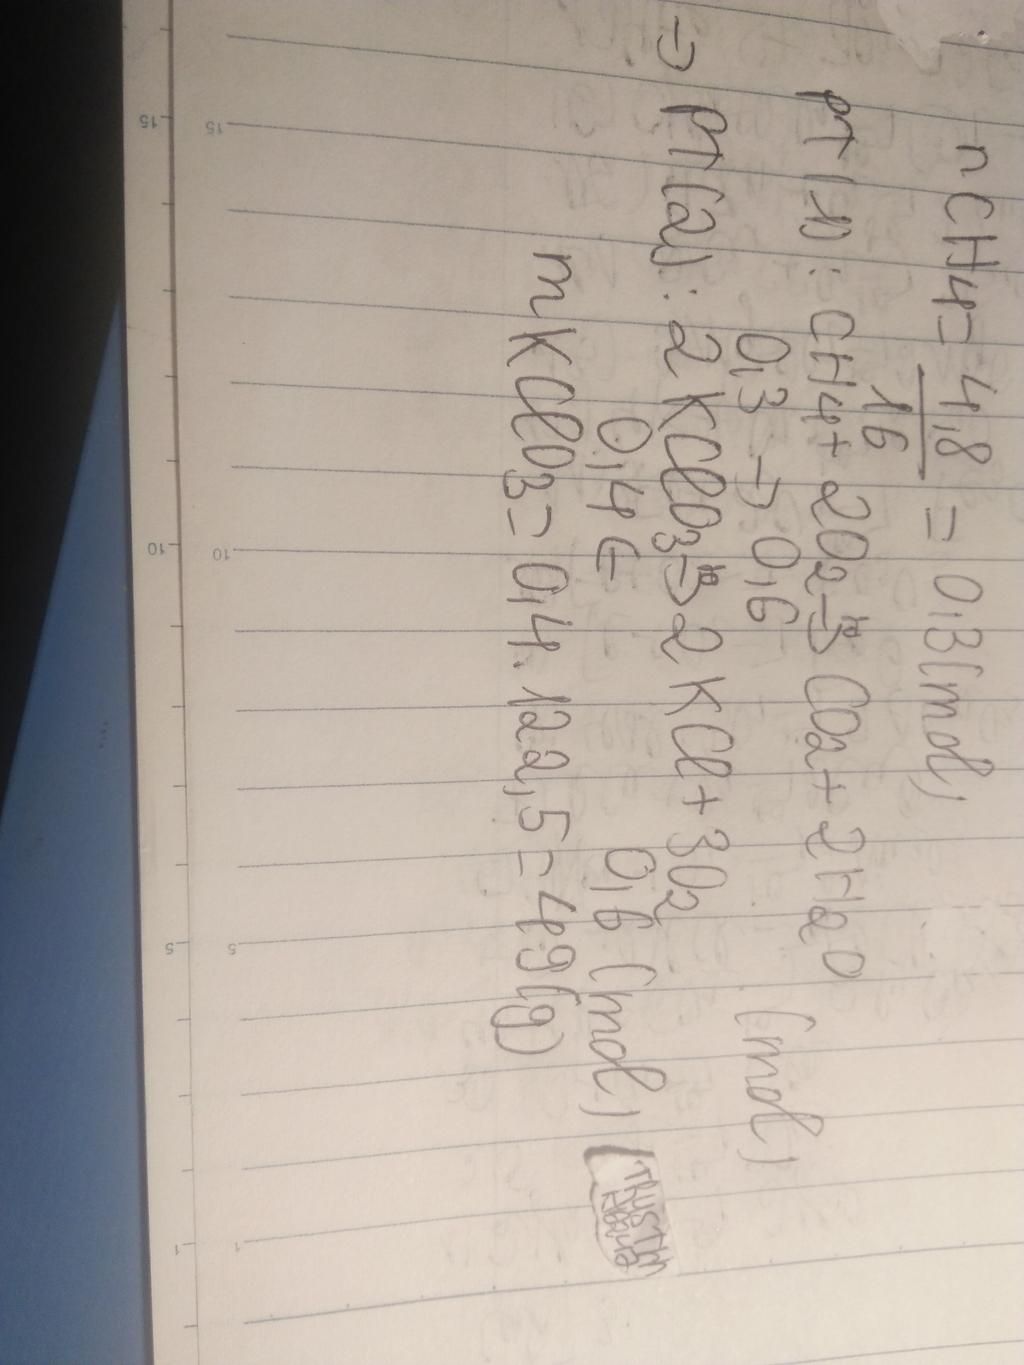 nCH4 = 4,8 / 16 = 0,3 (mol)
PT (1): CH4 + 2O2 -to-> CO2 + 2H2O
0,3 → 0,6 (mol)
→ PT(2): 2KClO3 -to-> 2KCl + 3O2
0,4 ← 0,6 (mol)
mKClO3 = 0,4 . 122,5 = 49 (g)
15 10 5 1
15 10 5 1